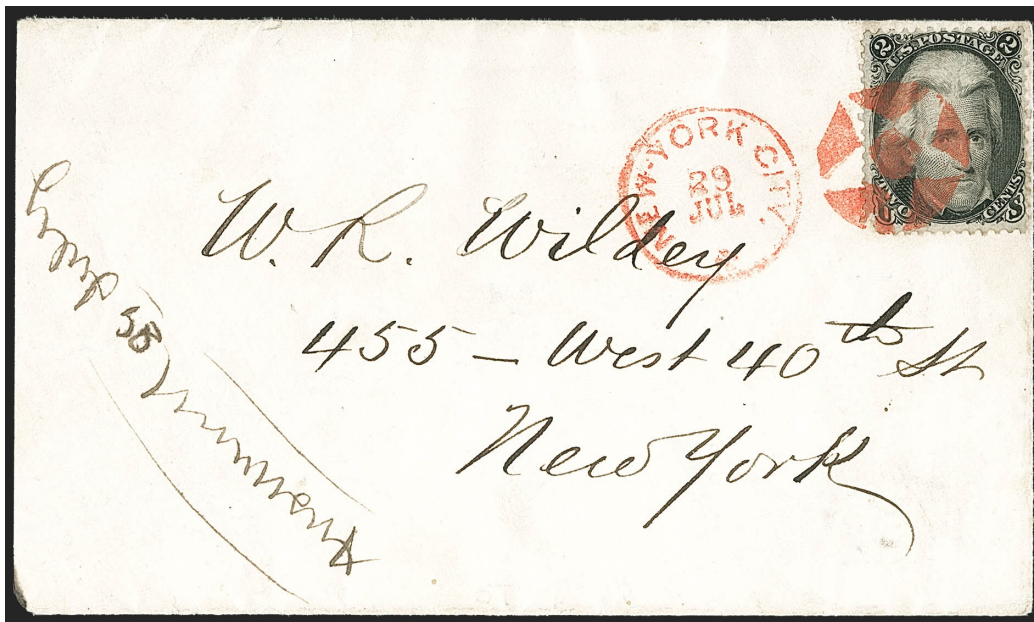 2 U.S. POSTAGE 2
CENTS
NEW-YORK CITY.
29
JUL
W. R. Wildey
455 – West 40th St
New York
Answered
July